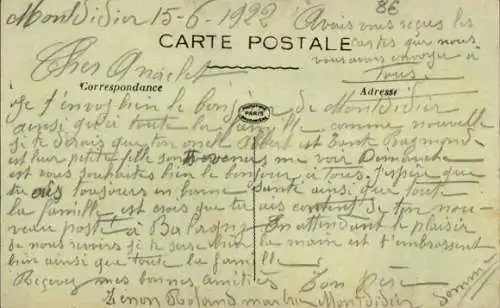 Montdidier 15-6-1922
86
Avais vous reçus les
cartes que nous
vous avons envoyer a
tous.
CARTE POSTALE
Cher Anaclet
Correspondance
Adresse
PARIS
Je t'envoy bien le bonjour de Montdidier
ainsi qu'a toute la famille comme nouvelle
je te derais que ton oncle Albert est Tante Raymonde
est leur petite fille sont venus me voir Demanche
est vous souhaites bien le bonjour a tous. J'espere que
tu ais toujours en bonne sante ainsi que toute
la famille est crois que tu ais content de ton nou-
veau poste a Balagny En attendant le plaisir
de nous revoirs je te serre bien la main est t'embrassent
bien ainsi que toute la famille
Recevez mes bonnes amities Ton Pere
Zenon marbre Montdidier
Somme